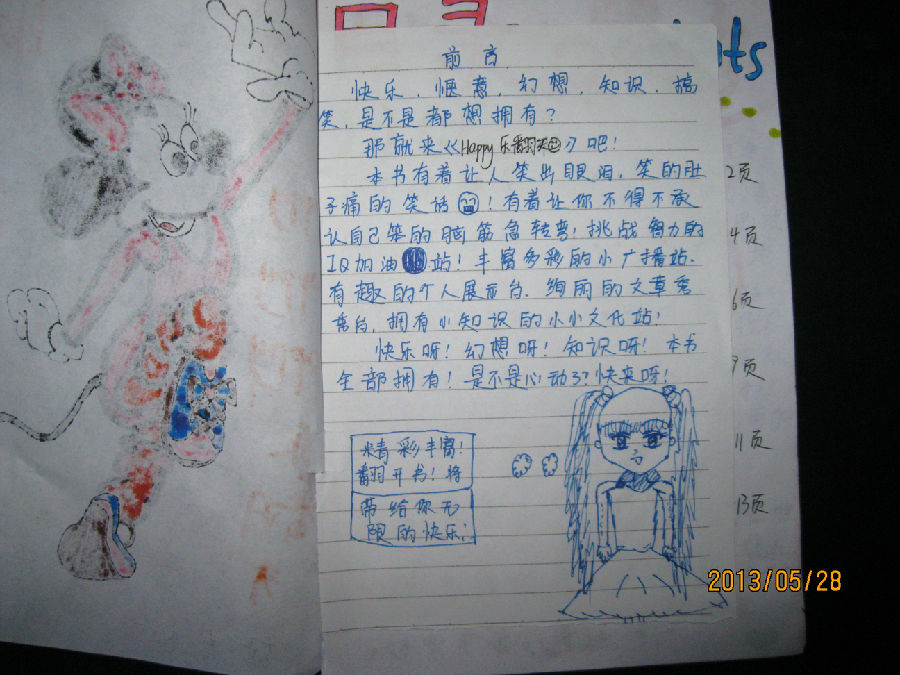 前言
快乐、惬意、幻想、知识、搞
笑,是不是都想拥有?
那就来《Happy乐翻天》吧!
本书有着让人笑出眼泪,笑的肚
子痛的笑话!有着让你不得不承
认自己笨的脑筋急转弯!挑战智力的
IQ加油站!丰富多彩的小广播站.
有趣的个人展示台.绚丽的文章秀
秀台.拥有小知识的小小文化站!
快乐呀!幻想呀!知识呀!本书
全部拥有!是不是心动了?快来呀!
精彩丰富!
翻开书!将
带给你无
限的快乐!
nts
2页
4页
6页
9页
11页
13页
2013/05/28